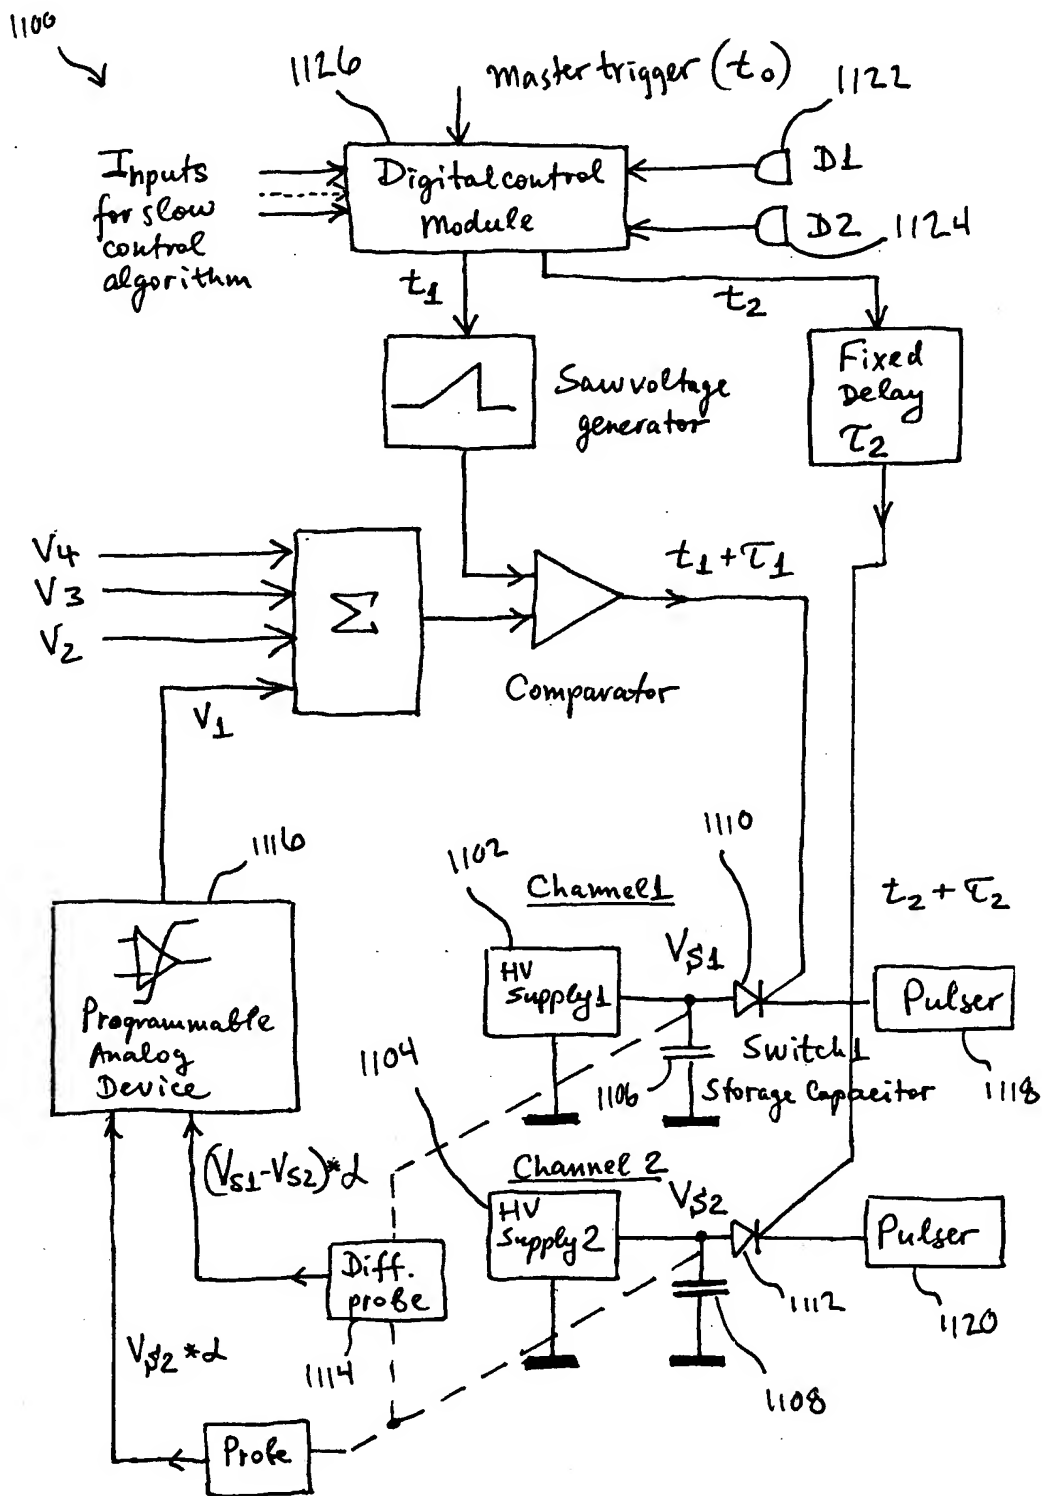 1100
1126
Master trigger (t₀)
1122
Inputs
for slow
control
algorithm
Digital control
Module
D1
D2
1124
t₁
t₂
Saw voltage
generator
Fixed
Delay
τ₂
V4
V3
V2
V1
Σ
t₁+τ₁
Comparator
1116
Programmable
Analog
Device
1110
1102
Channel 1
VS1
t₂+τ₂
HV
Supply1
Pulser
1118
Switch 1
1106
Storage Capacitor
1104
(VS1-VS2)*α
Channel 2
VS2
HV
Supply2
Pulser
1120
1112
1108
Diff.
probe
1114
VS2*α
Probe